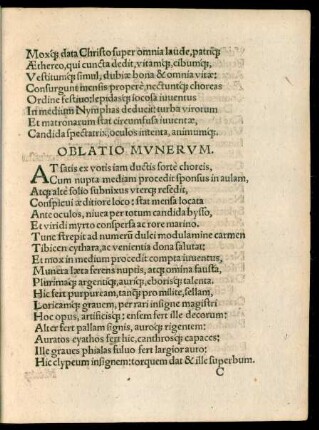 Moxq; data Christo super omnia laude, patriq;
Æthereo, qui cuncta dedit, vitamq;, cibumq;,
Vestitumq; simul, dubiæ bona & omnia vitæ:
Consurgunt mensis properè, nectuntq; choreas
Ordine festiuo: lepidasq; iocosa iuuentus
In medium Nymphas deducit: turba virorum
Et matronarum stat circumfusa iuuentæ,
Candida spectatrix, oculos intenta, animumq;.
OBLATIO MVNERVM.
AT satis ex votis iam ductis fortè choreis,
Cum nupta mediam procedit sponsus in aulam,
Atq; altè solio subnixus vterq; resedit,
Conspicui æditiore loco: stat mensa locata
Ante oculos, niuea per totum candida bysso,
Et viridi myrto conspersa ac rore marino.
Tunc strepit ad numerũ dulci modulamine carmen
Tibicen cythara, ac venientia dona salutat:
Et mox in medium procedit compta iuuentus,
Munera læta ferens nuptis, atq; omina fausta,
Plurimaq; argentiq;, auriq;, eborisq; talenta.
Hic fert purpuream, tanq̃ pro milite, sellam,
Loricamq; grauem, per rari insigne magistri
Hoc opus, artificisq;: ensem fert ille decorum:
Alter fert pallam signis, auroq; rigentem:
Auratos cyathos fert hic, cantharosq; capaces:
Ille graues phialas fuluo fert largior auro:
Hic clypeum insignem: torquem dat & ille superbum.
C